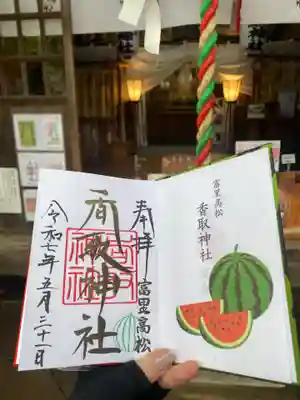 奉拝
富里高松
香取神社
令和七年五月三十一日
富里高松
香取神社